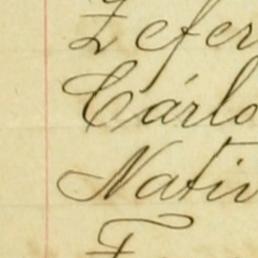 Zefer
Cárlo
Nativ